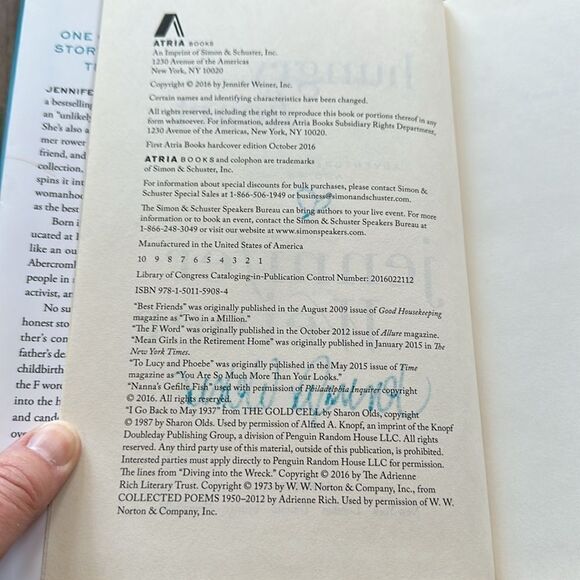 ONE
STOR
T
JENNIF
a bestselling
an "unlikely
She's also a
mer rower
friend, and
collection,
spins it int
womanhoo
as the best
Born i
ucated at
like an ou
Abercroml
people in
activist, an
No su
honest sto
ther's con
father's de
childbirth
the F word
into the h
and cand
ove
ATRIA BOOKS
An Imprint of Simon & Schuster, Inc.
1230 Avenue of the Americas
New York, NY 10020
Copyright © 2016 by Jennifer Weiner, Inc.
Certain names and identifying characteristics have been changed.
All rights reserved, including the right to reproduce this book or portions thereof in any
form whatsoever. For information, address Atria Books Subsidiary Rights Department,
1230 Avenue of the Americas, New York, NY 10020.
First Atria Books hardcover edition October 2016
ATRIA BOOKS and colophon are trademarks
of Simon & Schuster, Inc.
For information about special discounts for bulk purchases, please contact Simon &
Schuster Special Sales at 1-866-506-1949 or business@simonandschuster.com.
The Simon & Schuster Speakers Bureau can bring authors to your live event. For more
information or to book an event, contact the Simon & Schuster Speakers Bureau at
1-866-248-3049 or visit our website at www.simonspeakers.com.
Manufactured in the United States of America
10 9 8 7 6 5 4 3 2 1
Library of Congress Cataloging-in-Publication Control Number: 2016022112
ISBN 978-1-5011-5908-4
"Best Friends" was originally published in the August 2009 issue of Good Housekeeping
magazine as "Two in a Million."
"The F Word" was originally published in the October 2012 issue of Allure magazine.
"Mean Girls in the Retirement Home" was originally published in January 2015 in The
New York Times.
"To Lucy and Phoebe" was originally published in the May 2015 issue of Time
magazine as "You Are So Much More Than Your Looks."
"Nanna's Gefilte Fish" used with permission of Philadelphia Inquirer copyright
© 2016. All rights reserved.
"I Go Back to May 1937" from THE GOLD CELL by Sharon Olds, copyright
© 1987 by Sharon Olds. Used by permission of Alfred A. Knopf, an imprint of the Knopf
Doubleday Publishing Group, a division of Penguin Random House LLC. All rights
reserved. Any third party use of this material, outside of this publication, is prohibited.
Interested parties must apply directly to Penguin Random House LLC for permission.
The lines from "Diving into the Wreck." Copyright © 2016 by The Adrienne
Rich Literary Trust. Copyright © 1973 by W. W. Norton & Company, Inc., from
COLLECTED POEMS 1950–2012 by Adrienne Rich. Used by permission of W. W.
Norton & Company, Inc.